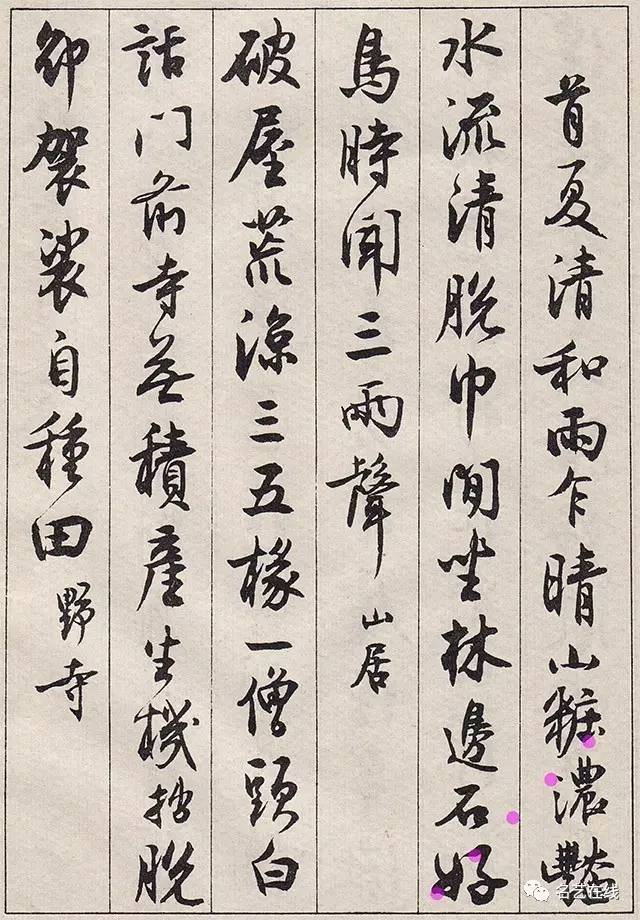 首夏清和雨乍晴山粧濃艷
水流清脫巾閒坐林邊石好
鳥時聞三兩聲 山居
破屋荒涼三五椽一僧頭白
話門前寺無積產生機拙脫
卻袈裟自種田 野寺
名艺在线